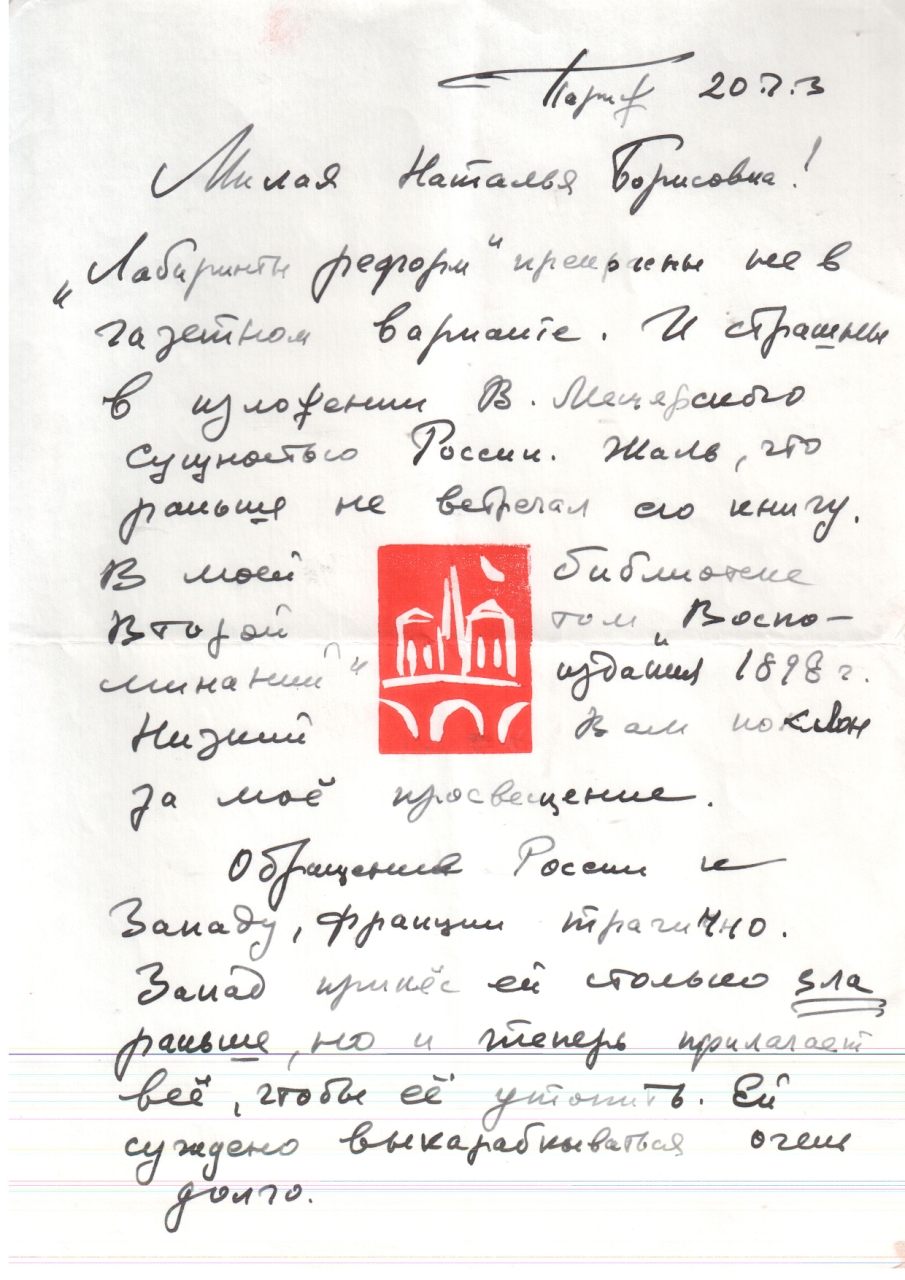 Париж 20.7.3
Милая Наталья Борисовна!
„Лабиринты реформ" прекрасны не в
газетном варианте. И страшны
в изложении В. Мещерского
сущностью России. Жаль, что
раньше не встречал его книгу.
В моей библиотеке
второй том „Воспо-
минаний" издания 1898 г.
Низкий Вам поклон
за моё просвещение.
Обращение России к
Западу, Франции трагично.
Запад принёс ей столько зла
раньше, но и теперь прилагает
всё, чтобы её утопить. Ей
суждено выкарабкиваться очень
долго.